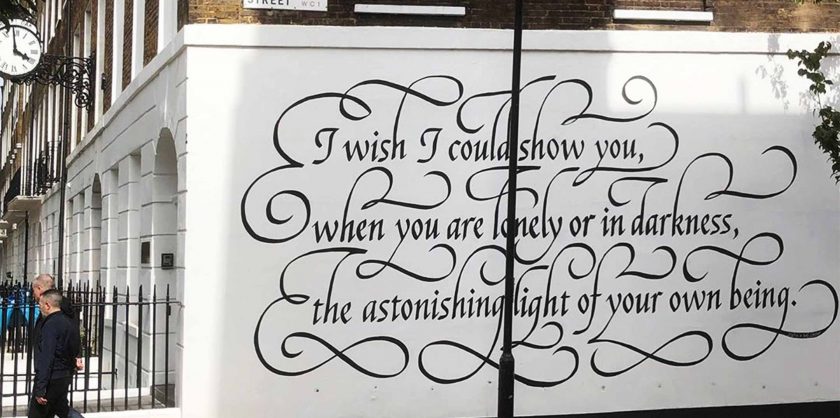 STREET WC1
I wish I could show you,
when you are lonely or in darkness,
the astonishing light of your own being.